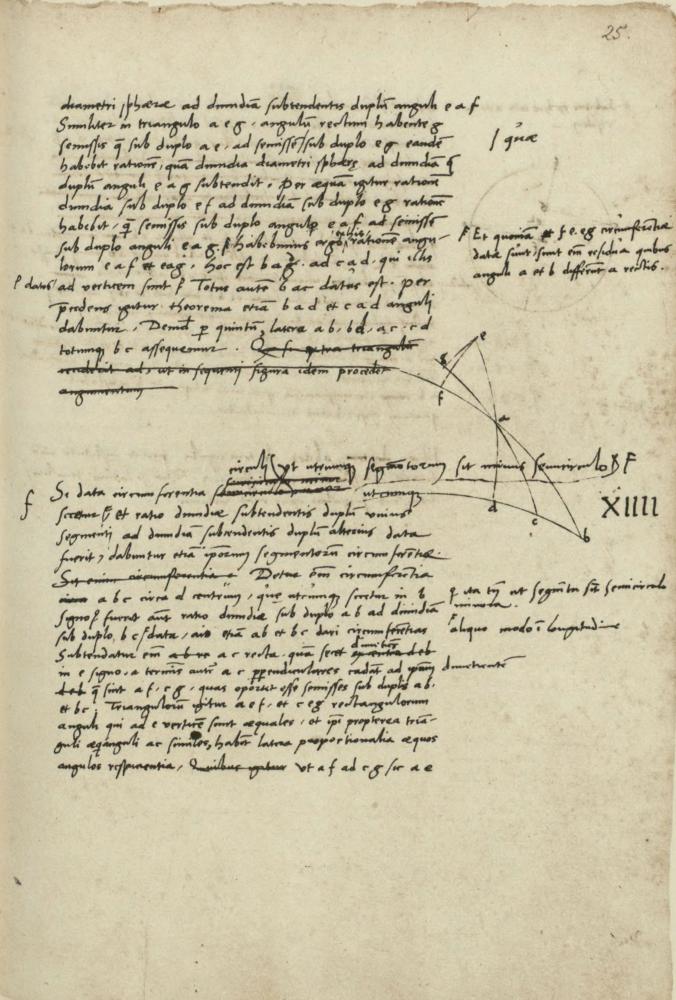 25.
diametri sphæræ ad dimidiā subtendentis duplū anguli e a f
Similiter in triangulo a e g, angulū rectum habente g
semissis q̄ sub duplo a e, ad semissē sub duplo e g eandē
habebit rationē, quā dimidia diametri sphæræ, ad dimidiā q̄
duplū anguli e a g subtendit, Per æquā igitur rationē
dimidia sub duplo e f ad dimidiā sub duplo e g rationē
habebit, q̄ semissis sub duplo anguli e a f ad semissē
sub duplo anguli e a g. habebimus ergo rationē angu-
lorum e a f et e a g, hoc est b a d ad c a d, qui illis
ad verticem sunt Totus autē b a c datus est. per
præcedens igitur theorema etiā b a d et c a d anguli
dabuntur, Demū p quintū latera a b, b d, a c, c d
totumq b c assequemur. triangulū
ut in sequenti figura idem procedet
argumentum
quæ
Et quoniā f e, e g circūferētiæ
data sunt, sunt em̄ residua quibus
anguli a et b differūt a rectis.
datus
e
g
f
a
d
c
b
circuli ut utrumq segmētorum sit minus semicirculo
XIIII
Si data circumferentia utcumque
secetur et ratio dimidiæ subtendentis duplū unius
segmenti ad dimidiā subtendentis duplū alterius data
fuerit, dabuntur etiā ipsorum segmentorū circumferētiæ.
Sit enim circumferentia Detur em̄ circumferētia
a b c circa d centrum, quæ utcumque secetur in b
signo fuerit aūt ratio dimidiæ sub duplo a b ad dimidiā
sub duplo, b c data, aio etiā a b et b c dari circumferētias
Subtendatur em̄ a c recta, quā secet dimetiēs d e b
in e signo, a terminis autē a c ppendiculares cadāt ad ipsam
q̄ sint a f, c g, quas oportet esse semisses sub duplis a b.
et b c. Triangulorū igitur a e f, et c e g rectangulorum
anguli qui ad e verticē sunt æquales, et ipsi propterea triā-
guli æquianguli ac similes, habēt latera proportionalia æquos
angulos respicientia, Quibus igitur ut a f ad c g sic a e
ita tn̄ ut segmēta sīt semicirculo
minora.
aliquo modo ī longitudine
dimetientē